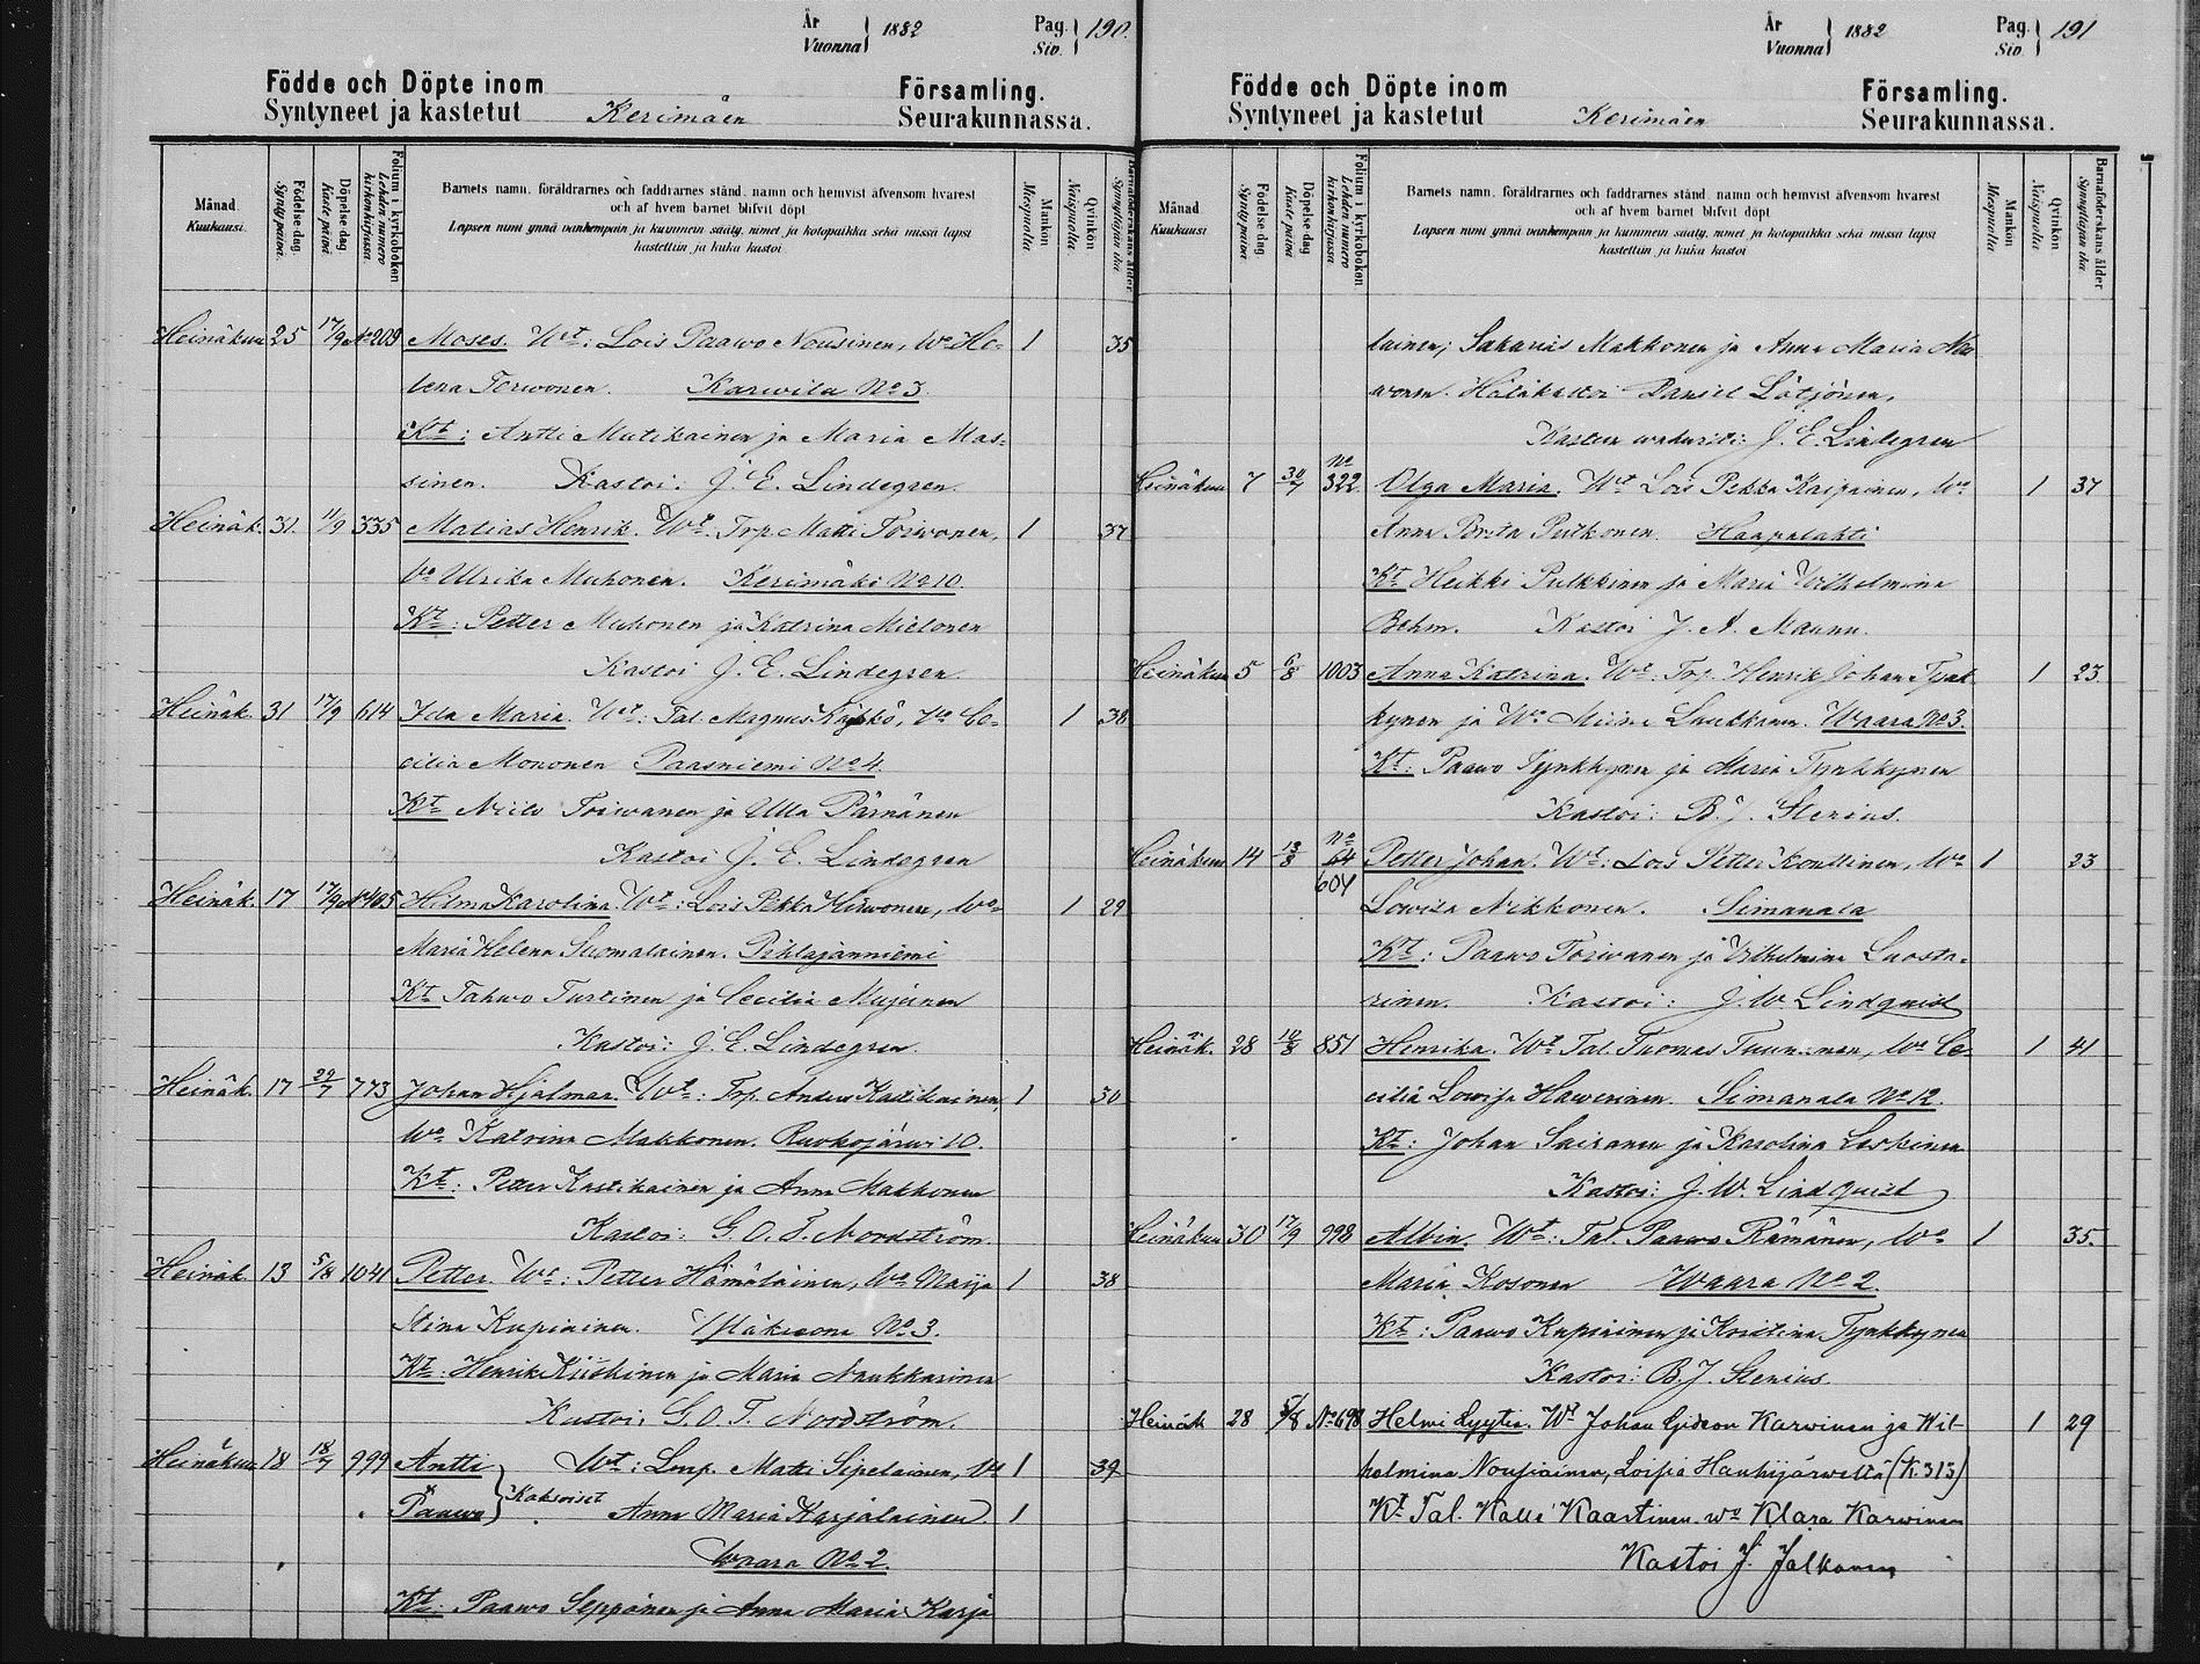 År Vuonna 1882 Pag. Siv. 190.
Födde och Döpte inom Församling.
Syntyneet ja kastetut Kerimäen Seurakunnassa.
Månad Kuukausi.
Födelse dag. Synty päivä.
Döpelse dag Kaste päivä
Folium i kyrkoboken Lehden numero kirkonkirjassa.
Barnets namn, föräldrarnes och faddrarnes stånd, namn och hemvist äfvensom hvarest
och af hvem barnet blifvit döpt
Lapsen nimi ynnä vanhempain ja kummein sääty, nimet ja kotopaikka sekä missä lapsi
kastettiin ja kuka kastoi
Mankön Miespuolia.
Qvinkön Naispuolia.
Barnaföderskans ålder Synnyttäjän ikä.
Heinäkuu 25 17/9 No 209 Moses. Wt: Lois Paawo Nousinen, Wo He- 1 35
lena Torwonen. Karwila No 3.
Kt: Antti Mutikainen ja Maria Mas-
sinen. Kastoi: J. E. Lindegren.
Heinäk. 31. 11/9 335 Matias Henrik. Wt. Trp. Matti Toiwonen, 1 37
Wo Ulrika Muhonen. Kerimäki No 10.
Kt: Petter Muhonen ja Katrina Mielonen
Kastoi J. E. Lindegren
Heinäk. 31 17/9 614 Ida Maria. Wt: Tal. Magnus 1 38
cilia Mononen Paasniemi No 4.
Kt Niilo Toiwanen ja Ulla Pärnänen
Kastoi J. E. Lindegren
Heinäk. 17 17/9 No 405 Hilma Karolina. Wt: Lois Pekka Hirwonen, Wo 1 29
Maria Helena Suomalainen. Pihlajanniemi
Kt Tahwo Turtinen ja Cecilia Mujunen
Kastoi: J. E. Lindegren.
Heinäk. 17 29/7 773 Johan Hjalmar. Wt: Trp. Anders Kastikainen, 1 30
Wo Katrina Makkonen. Ruokojärwi 10.
Kt: Petter Kastikainen ja Anna Makkonen
Kastoi: G. O. T. Nordström.
Heinäk 13 5/8 1041 Petter. Wt: Petter Hämäläinen, Wo Maija 1 38
Stina Kupiainen. No 3.
Kt: Henrik Kiiskinen ja Maria Naukkarinen
Kastoi, G. O. T. Nordström.
Heinäkuu 18 18/7 999 Antti Wt: Lmp. Matti Sipelainen, 1 39
Paawo Kaksoiset Anna Maria Karjalainen. 1
Waara No 2.
Kt: Paawo Seppänen ja Anna Maria Karja
År Vuonna 1882 Pag. Siv. 191
Födde och Döpte inom Församling.
Syntyneet ja kastetut Kerimäen Seurakunnassa.
Månad Kuukausi
Födelse dag Synty päivä
Döpelse dag Kaste päivä
Folium i kyrkoboken Lehden numero kirkonkirjassa.
Barnets namn, föräldrarnes och faddrarnes stånd, namn och hemvist äfvensom hvarest
och af hvem barnet blifvit döpt
Lapsen nimi ynnä vanhempain ja kummein sääty, nimet ja kotopaikka sekä missä lapsi
kastettiin ja kuka kastoi
Mankön Miespuolia
Qvinkön Naispuolia
Barnaföderskans ålder Synnyttäjän ikä
lainen; Sakarias Makkonen ja Anna Maria
wonen. Hätäkastoi Daniel Lätjönen,
Kasteen wahwisti: J. E. Lindegren
Heinäkuu 7 30/7 No 322. Olga Maria. Wt Lois Pekka Kaipainen, Wo 1 37
Anna Brita Pulkonen. Haapalahti
Kt Heikki Pulkkinen ja Maria Wilhelmina
Behm. Kastoi J. A. Maunu.
Heinäkuu 5 6/8 1003 Anna Katrina. Wt. Trp. Henrik Johan Tynk 1 23
kynen ja Wo Miina Laukkanen. Waara No 3.
Kt: Paawo Tynkkynen ja Maria Tynkkynen
Kastoi: B. J. Stenius.
Heinäkuu 14 13/8 No 64 604 Petter Johan. Wt: Lois Petter Konttinen, Wo 1 23
Lowisa Nikkonen. Simanala
Kt: Paawo Toiwanen ja Wilhelmina Luosta-
rinen. Kastoi: J. W. Lindquist
Heinäk. 28 12/8 851 Henrika. Wt Tal. Tuomas Tuunanen, Wo Ce- 1 41
cilia Lowisa Hawerinen. Simanala No 12.
Kt: Johan Sairanen ja Karolina Leskinen
Kastoi: J. W. Lindquist
Heinäkuu 30 17/9 998 Albin. Wt: Tal. Paawo Rämänen, Wo 1 35.
Maria Kosonen Waara No 2.
Kt: Paawo Kupiainen ja Kristina Tynkkynen
Kastoi: B. J. Stenius.
Heinäk 28 5/8 No 698 Helmi Lyytia. Wt Johan Gideon Karwinen ja Wil- 1 29
helmina Nousiainen, Loisia Hanhijärweltä (K. 313)
Kt Tal. Kalle Kaartinen. wo Klara Karwinen
Kastoi J. Jalkanen